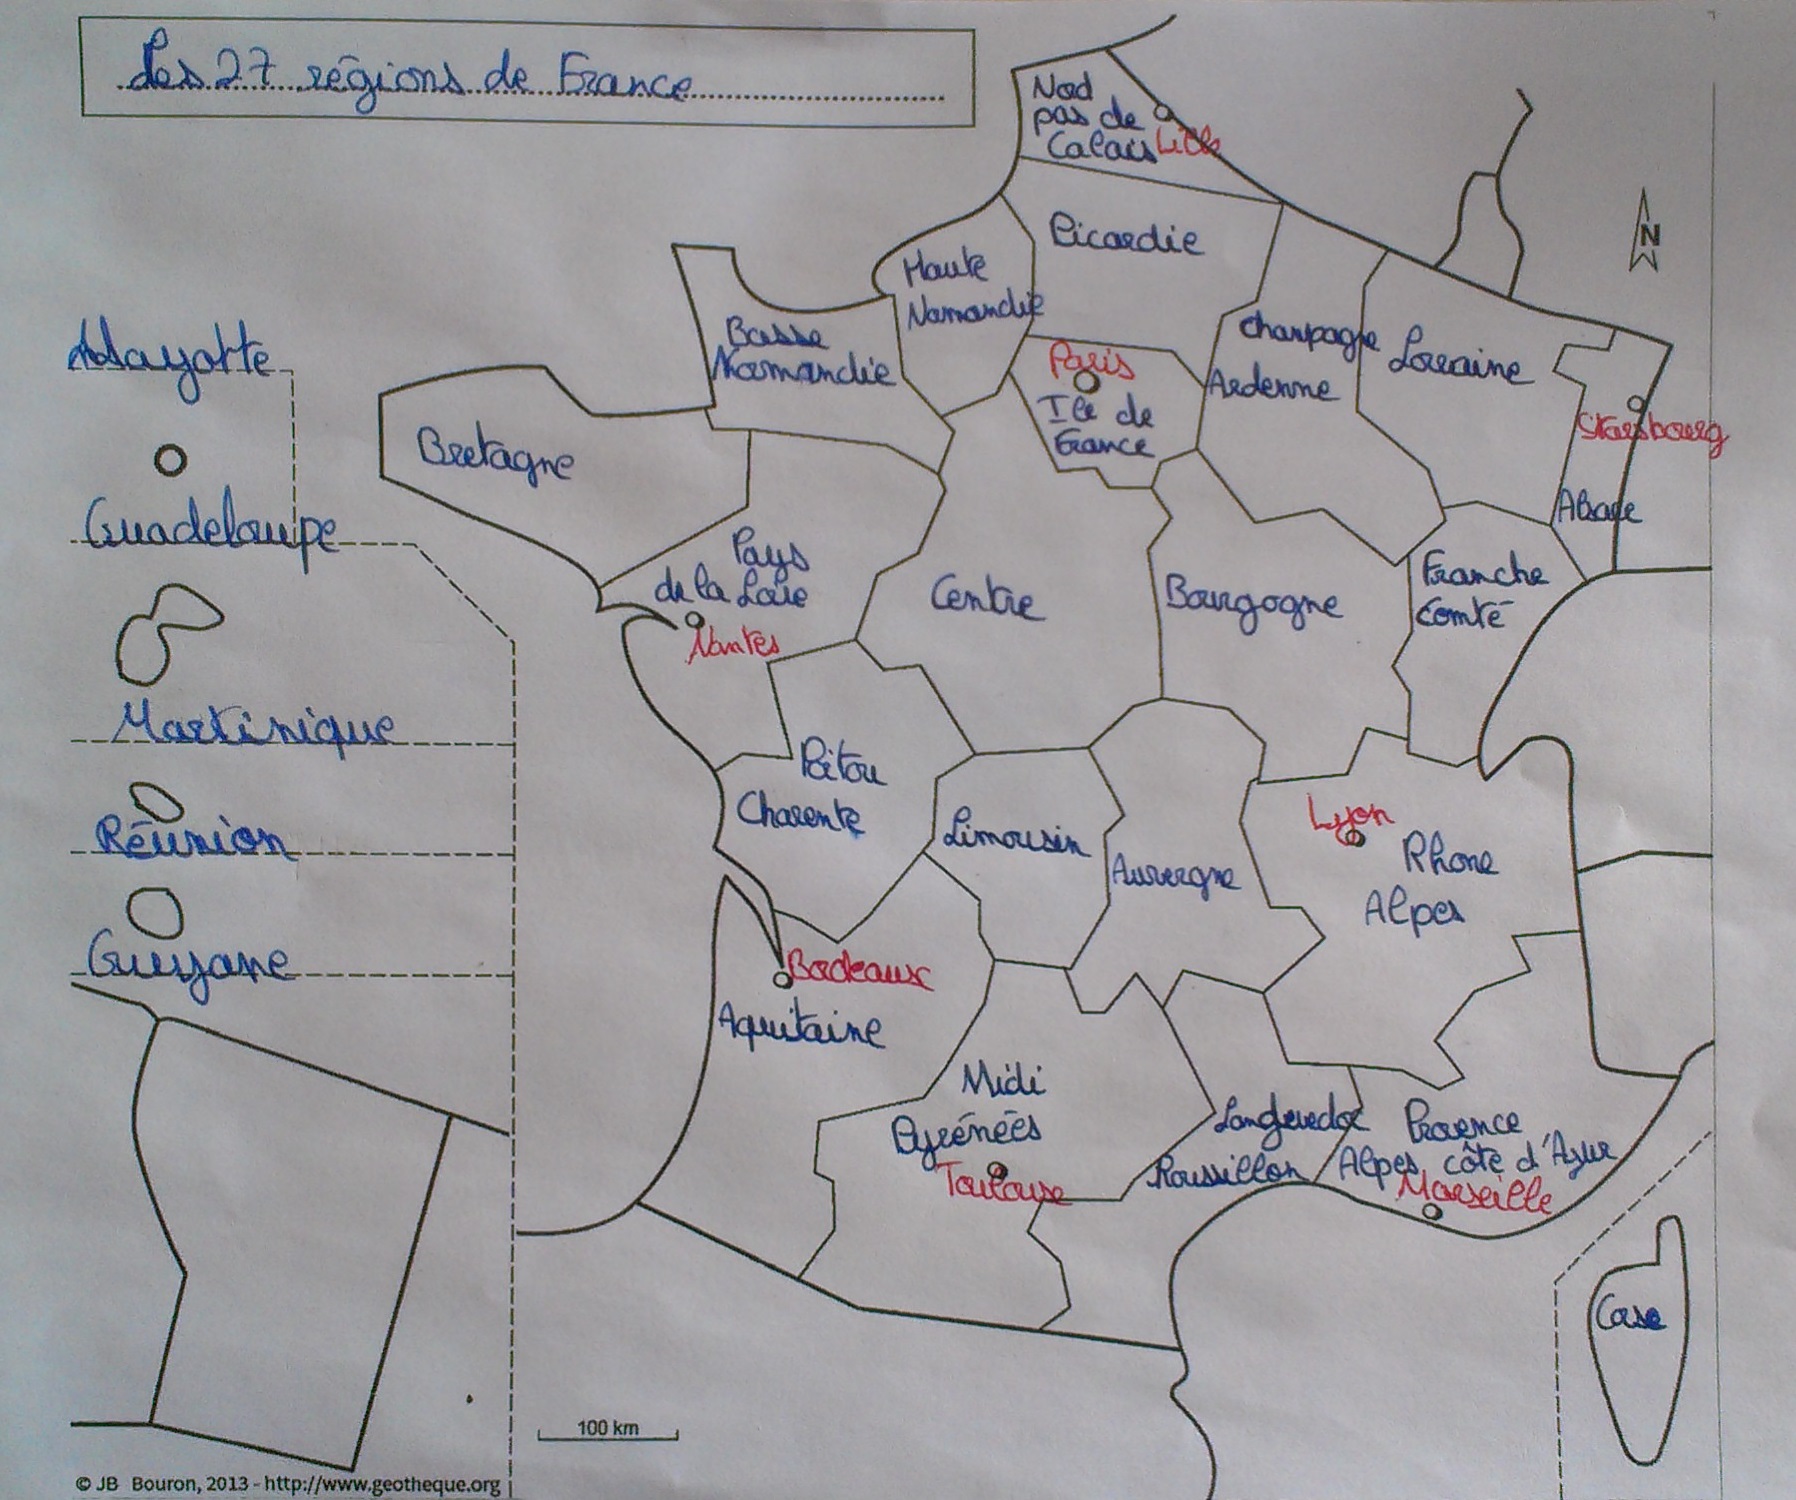 Les 27 régions de France
Nord
pas de
Calais
Lille
N
Picardie
Haute
Normandie
Basse
Normandie
Paris
Ile de
France
Champagne
Ardenne
Lorraine
Strasbourg
Alsace
Mayotte
Bretagne
Guadeloupe
Pays
de la Loire
Nantes
Centre
Bourgogne
Franche
Comté
Martinique
Poitou
Charente
Limousin
Auvergne
Lyon
Rhone
Alpes
Réunion
Guyane
Bordeaux
Aquitaine
Midi
Pyrénées
Toulouse
Languedoc
Roussillon
Provence
Alpes côte d'Azur
Marseille
Corse
100 km
© JB Bouron, 2013 - http://www.geotheque.org